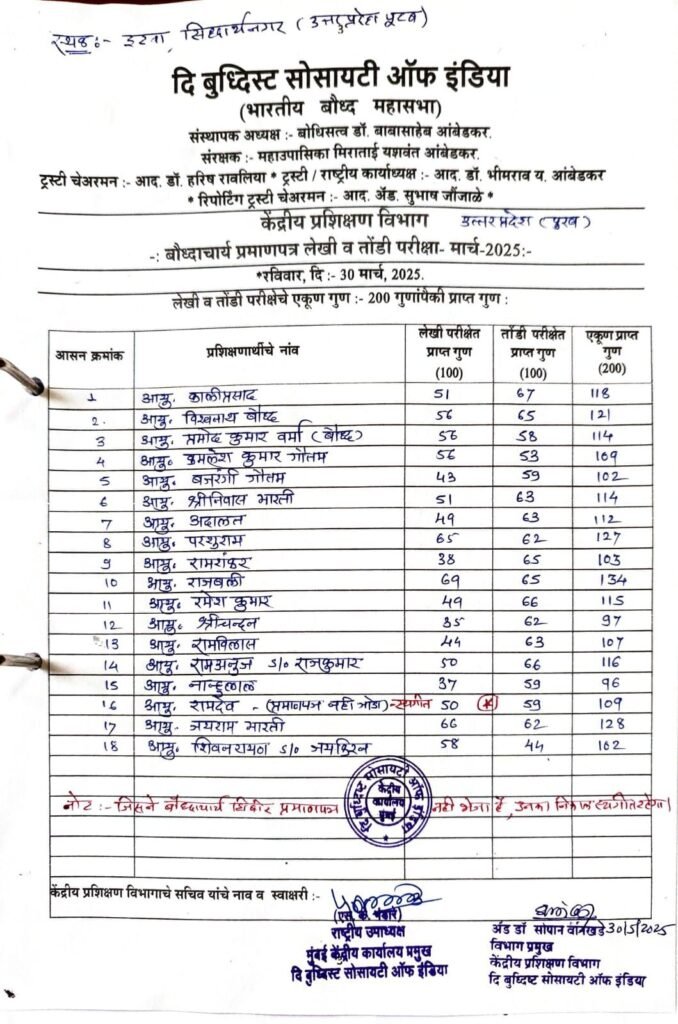 स्थळ:- इटवा, सिद्धार्थनगर (उत्तर प्रदेश पूरब)
दि बुध्दिस्ट सोसायटी ऑफ इंडिया
(भारतीय बौध्द महासभा)
संस्थापक अध्यक्ष :- बोधिसत्व डॉ. बाबासाहेब आंबेडकर.
संरक्षक :- महाउपासिका मिराताई यशवंत आंबेडकर.
ट्रस्टी चेअरमन :- आद. डॉ. हरिष रावलिया * ट्रस्टी / राष्ट्रीय कार्याध्यक्ष :- आद. डॉ. भीमराव य. आंबेडकर
* रिपोर्टिंग ट्रस्टी चेअरमन :- आद. ॲड. सुभाष जौंजाळे *
केंद्रीय प्रशिक्षण विभाग उत्तर प्रदेश (पुरब)
-: बौध्दाचार्य प्रमाणपत्र लेखी व तोंडी परीक्षा- मार्च-2025:-
*रविवार, दि :- 30 मार्च, 2025.
लेखी व तोंडी परीक्षेचे एकूण गुण :- 200 गुणांपैकी प्राप्त गुण :
आसन क्रमांक प्रशिक्षणार्थीचे नांव लेखी परीक्षेत प्राप्त गुण (100) तोंडी परीक्षेत प्राप्त गुण (100) एकूण प्राप्त गुण (200)
1 आयु. कालीप्रसाद 51 67 118
2. आयु. विश्वनाथ बौध्द 56 65 121
3 आयु. प्रमोद कुमार वर्मा (बौध्द) 56 58 114
4 आयु. कमलेश कुमार गौतम 56 53 109
5 आयु. बजरंगी गौतम 43 59 102
6 आयु. श्रीनिवास भारती 51 63 114
7 आयु. अदालत 49 63 112
8 आयु. परशुराम 65 62 127
9 आयु. रामशंकर 38 65 103
10 आयु. राजबली 69 65 134
11 आयु. रमेश कुमार 49 66 115
12 आयु. श्रीचन्दन 35 62 97
13 आयु. रामविलास 44 63 107
14 आयु. रामअनुज S/o राजकुमार 50 66 116
15 आयु. नान्हुलाल 37 59 96
16 आयु. रामदेव - (प्रमाणपत्र नही जोडा)-स्थगीत 50 * 59 109
17 आयु. जयराम भारती 66 62 128
18 आयु. शिवनरायण S/o जयकिरन 58 44 102
दि बुध्दिस्ट सोसायटी ऑफ इंडिया
केंद्रीय कार्यालय मुंबई
नोट :- जिसने बौध्दाचार्य शिबीर प्रमाणपत्र नही भेजा है, उनका निकाल स्थगीत रहेगा।
केंद्रीय प्रशिक्षण विभागाचे सचिव यांचे नाव व स्वाक्षरी :-
(एस. के. भंडारे)
राष्ट्रीय उपाध्यक्ष
मुंबई केंद्रीय कार्यालय प्रमुख
दि बुध्दिस्ट सोसायटी ऑफ इंडिया
अॅड डॉ सोपान वानखडे 30/5/2025
विभाग प्रमुख
केंद्रीय प्रशिक्षण विभाग
दि बुध्दिष्ट सोसायटी ऑफ इंडिया